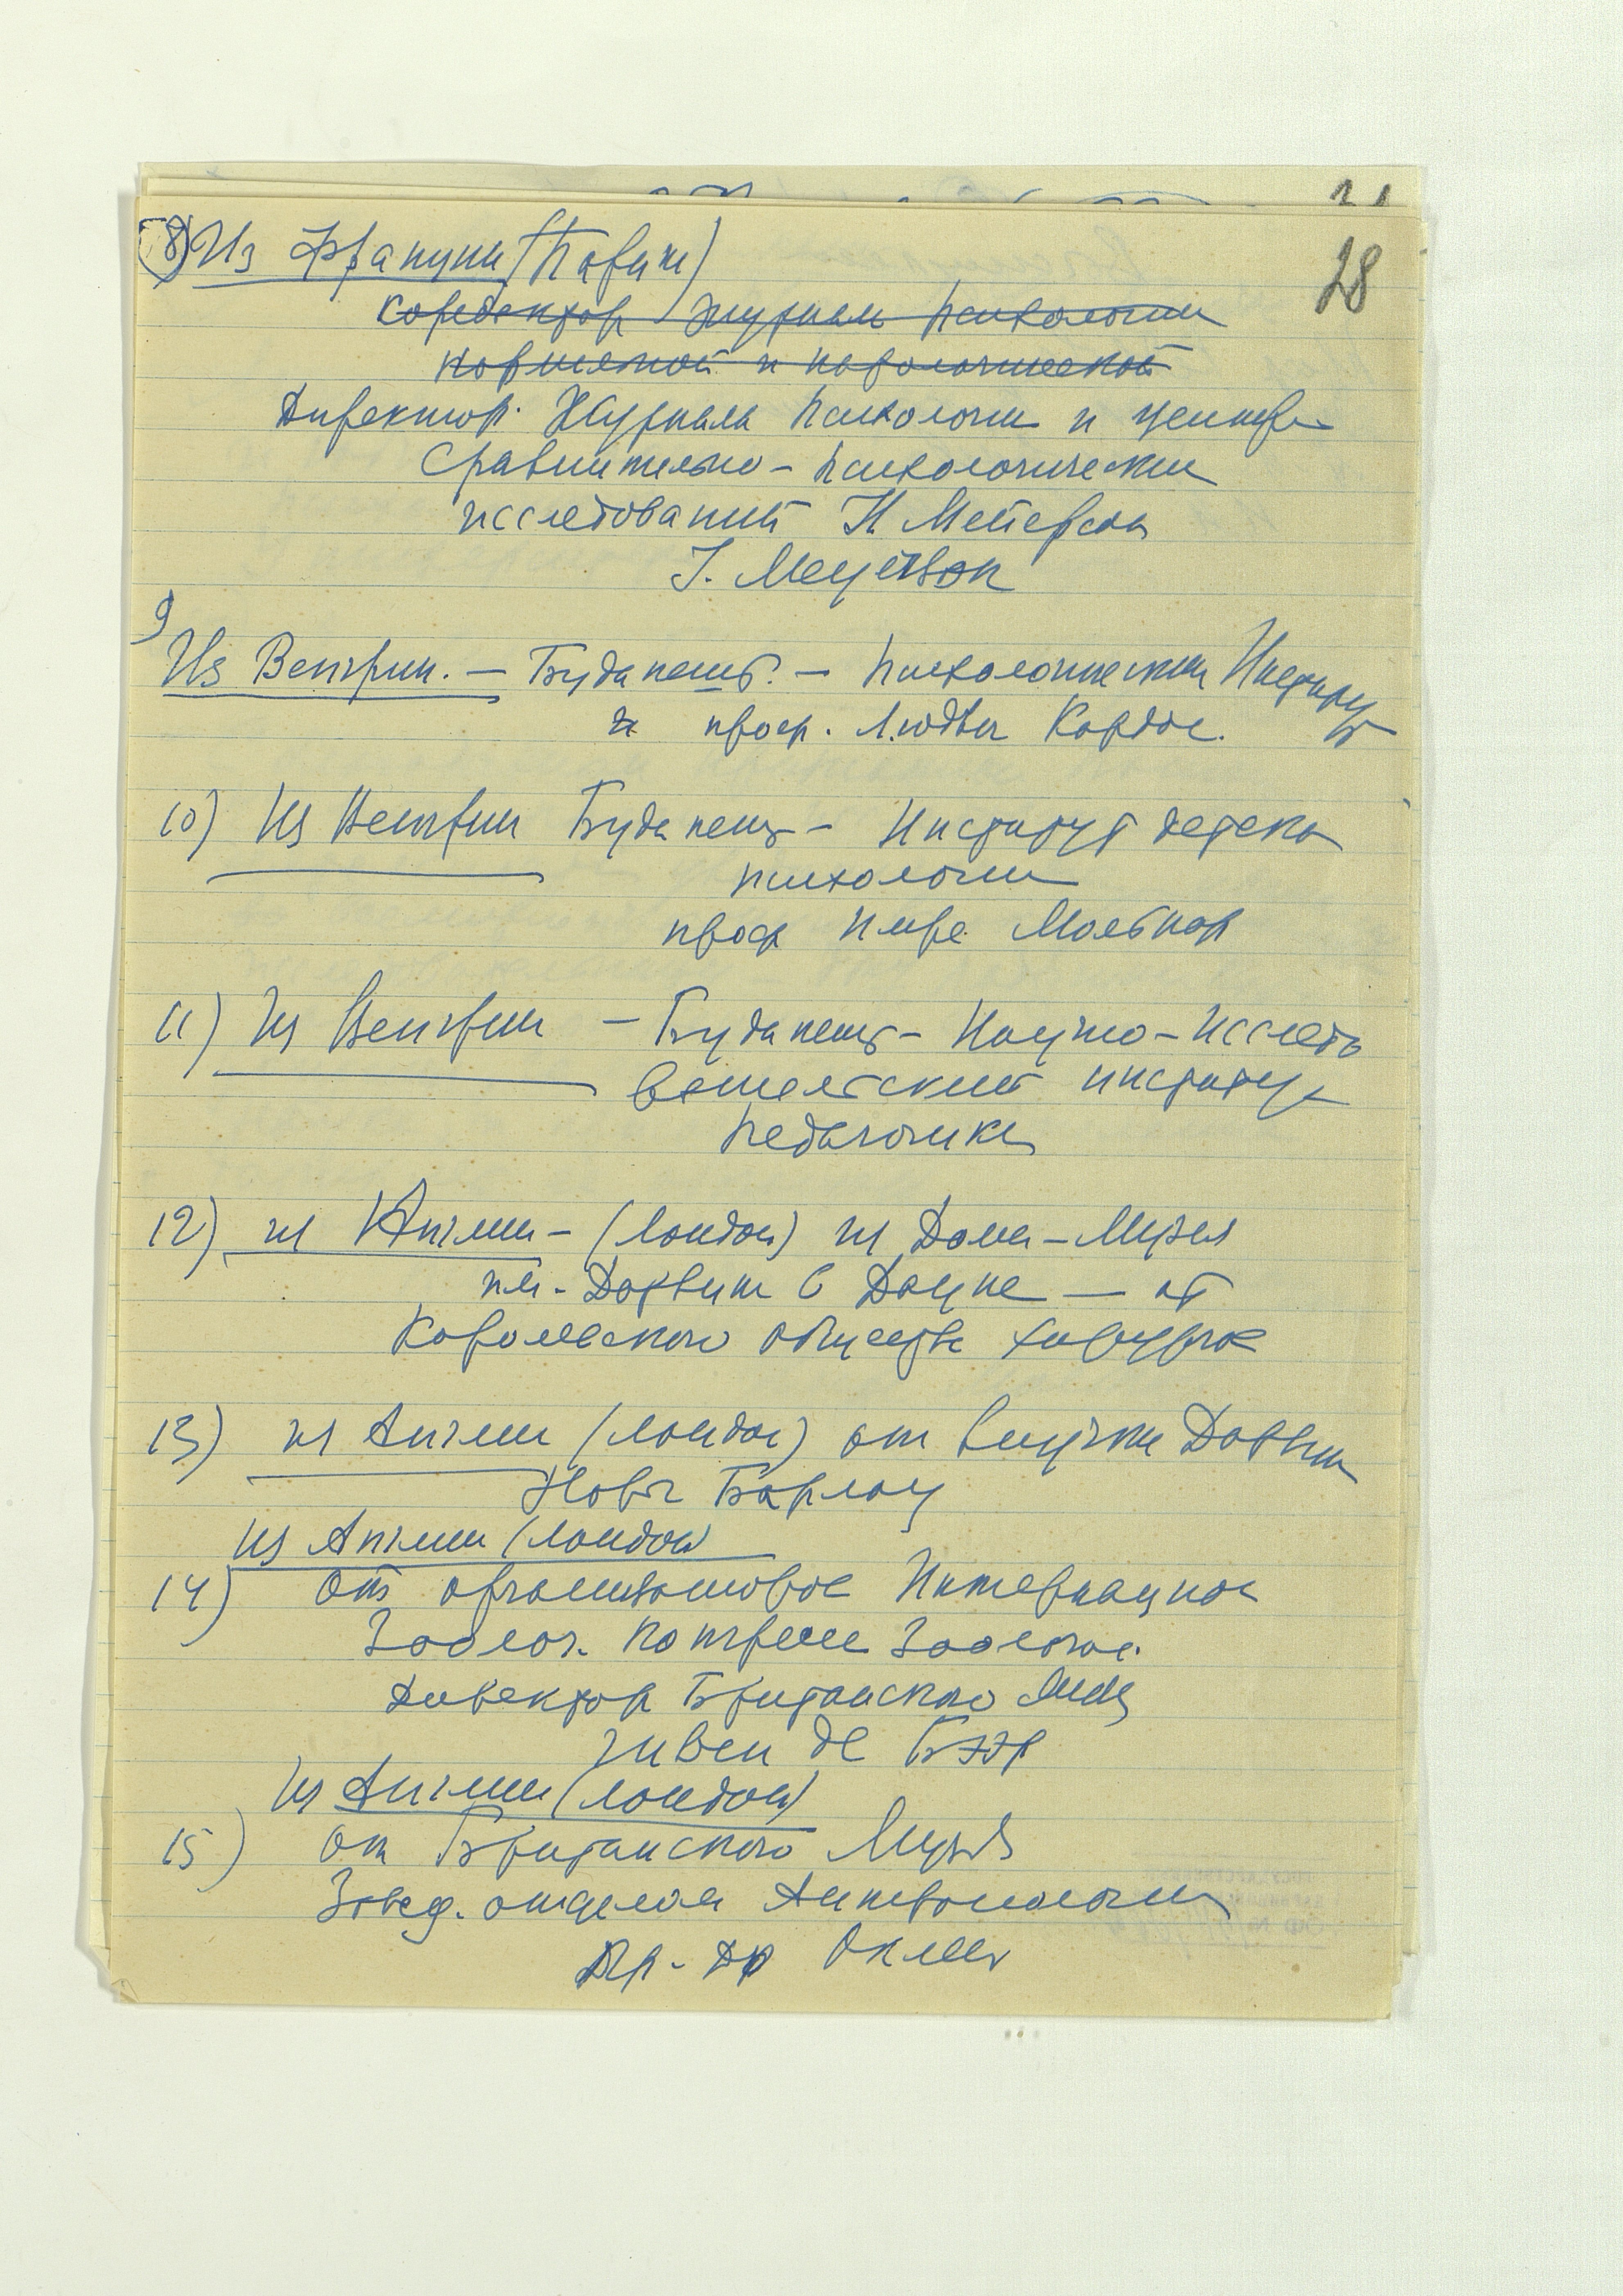 28
8) Из Франции (Париж)
Коредактор журнала психологии
нормальной и патологической
Директор Журнала психологии и центра
сравнительно-психологических
исследований И Мейерсон
I. Meyerson
9
Из Венгрии. — Будапешт. — психологический Институт
и проф. Людвиг Кардос.
10) Из Венгрии Будапешт — Институт детской
психологии
проф Имре Мольнар
11) Из Венгрии — Будапешт — Научно-исследо
вательский институт
педагогики
12) из Англии — (Лондон) из Дома-Музея
им. Дарвина в Дауне — от
Королевского общества хирургов
13) из Англии (Лондон) от внучки Дарвина
Норы Барлоу
из Англии (Лондон)
14) от организаторов Интернацион
Зоолог. конгресса Зоологов.
Директор Британского Муз
Гивен де Бэр
из Англии (Лондон)
15) от Британского Музея
Завед. отделом Антропологии
Др. Окли